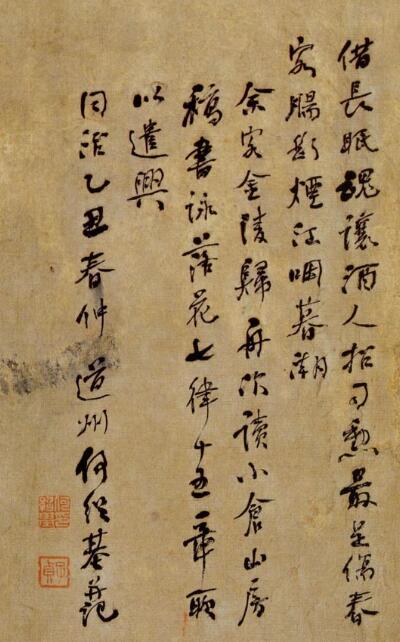 借長眠魂讓酒人招司勲最是傷春
客腸斷煙江咽暮潮
余客金陵歸舟次讀小倉山房
稿書詠落花七律十五章聊
以遣興
同治乙丑春仲道州何紹基
子貞